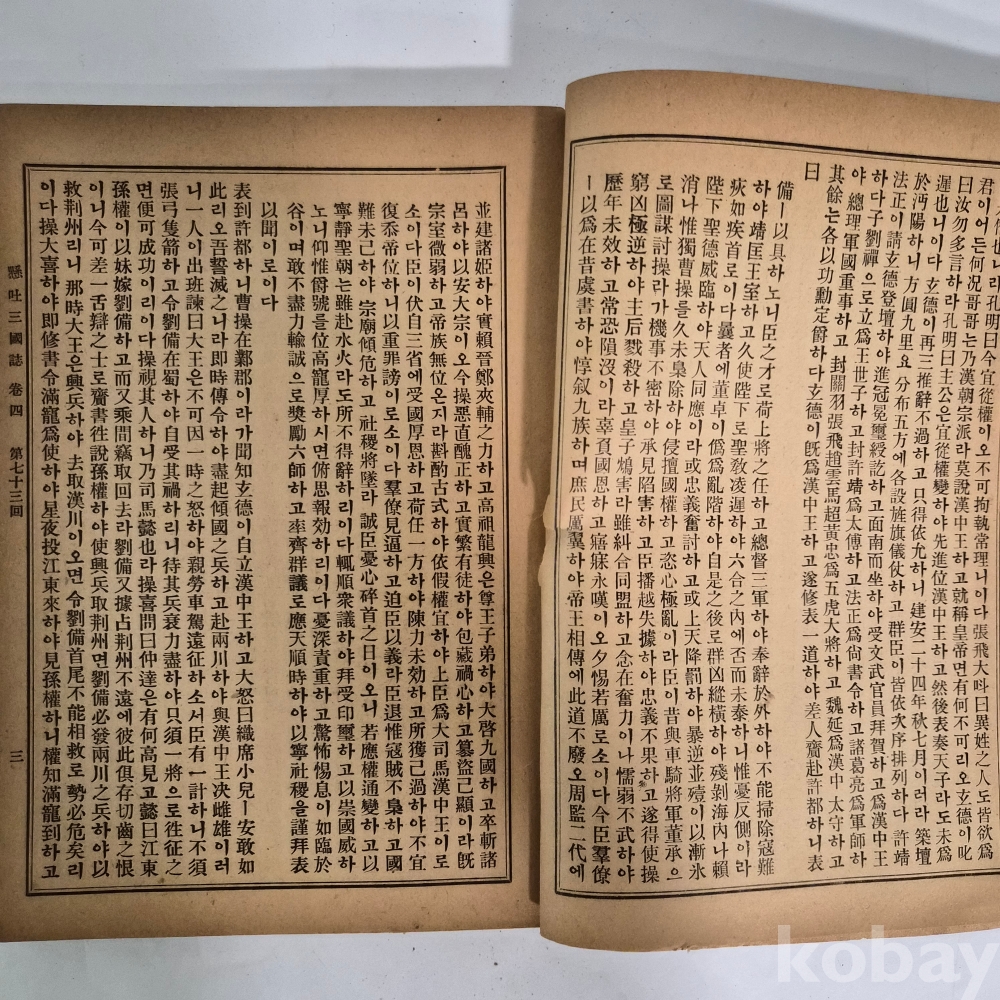 니라孔明曰今宜從權이오不可拘執常理니이다張飛大呌曰異姓之人도皆欲爲
君이어든何況哥哥는乃漢朝宗派라莫說漢中王하고就稱皇帝면有何不可리오玄德이叱
曰汝勿多言하라孔明曰主公은宜從權變하야先進位漢中王하고然後表奏天子라도未爲
遲也니이다玄德이再三推辭不過하고只得依允하니建安二十四年秋七月이러라築壇
於沔陽하니方圓九里요分布五方에各設旌旗儀仗하고群臣이皆依次序排列하다許靖
法正이請玄德登壇하야進冠冕璽綬訖하고面南而坐하야受文武官員拜賀하고爲漢中王
하다子劉禪으로立爲王世子하고封許靖爲太傅하고法正爲尙書令하고諸葛亮爲軍師하
야總理軍國重事하고封關羽張飛趙雲馬超黃忠爲五虎大將하고魏延爲漢中太守하고
其餘는各以功勳定爵하다玄德이旣爲漢中王하고遂修表一道하야差人齎赴許都하니表
曰
備ㅣ以具하노니臣之才로荷上將之任하고總督三軍하야奉辭於外하야不能掃除寇難
하야靖匡王室하고久使陛下로聖敎凌遲하야六合之內에否而未泰하니惟憂反側이라
疢如疾首로이다曩者에董卓이僞爲亂階하야自是之後로群凶縱橫하야殘剝海內나賴
陛下聖德威臨하야天人同應이라或忠義奮討하고或上天降罰하야暴逆並殪이以漸氷
消나惟獨曹操를久未梟除하야侵擅國權하고恣心極亂이라臣이昔與車騎將軍董承으
로圖謀討操라가機事不密하야承見陷害하고臣播越失據하야忠義不果하고遂得使操
窮凶極逆하야主后戮殺하고皇子鴆害라雖糾合同盟하고念在奮力이나懦弱不武하야
歷年未效하고常恐殞沒이라辜負國恩하고寤寐永嘆이오夕惕若厲로소이다今臣羣僚
ㅣ以爲在昔虞書하야惇叙九族하며庶民厲翼하야帝王相傳에此道不廢오周監二代에
並建諸姬하야實賴晉鄭夾輔之力하고高祖龍興은尊王子弟하야大啓九國하고卒斬諸
呂하야以安大宗이오今操惡直醜正하고實繁有徒하야包藏禍心하고簒盜已顯이라旣
宗室微弱하고帝族無位온지라斟酌古式하야依假權宜하야上臣爲大司馬漢中王이로
소이다臣이伏自三省에受國厚恩하고荷任一方하야陳力未効하고所獲已過하야不宜
復忝帝位하니以重罪謗이로소이다羣僚見逼하고迫臣以義라臣退惟寇賊不梟하고國
難未已하야宗廟傾危하고社稷將墜라誠臣憂心碎首之日이오니若應權通變하고以
寧靜聖朝는雖赴水火라도所不得辭하리이다輒順衆議하야拜受印璽하고以崇國威하
노니仰惟爵號를位高寵厚하시면俯思報効하리이다憂深責重하고驚怖惕息이如臨於
谷이며敢不盡力輸誠으로奬勵六師하고率齊群議로應天順時하야以寧社稷을謹拜表
以聞이로이다
表到許都하니曹操在鄴郡이라가聞知玄德이自立漢中王하고大怒曰織席小兒ㅣ安敢如
此리오吾誓滅之니라即時傳令하야盡起傾國之兵하고赴兩川하야與漢中王決雌雄이러
니一人이出班諫曰大王은不可因一時之怒하야親勞車駕遠征하소서臣有一計하니不須
張弓隻箭하고令劉備在蜀하야自受其禍하리니待其兵衰力盡하야只須一將으로徃征之
면便可成功이리이다操視其人하니乃司馬懿也라操喜問曰仲達은有何高見고懿曰江東
孫權이以妹嫁劉備하고而又乘間竊取回去라劉備又據占荆州不遠에彼此俱存切齒之恨
이니今可差一舌辯之士로齎書往說孫權하야使興兵取荆州면劉備必發兩川之兵하야以
救荆州리니那時大王은興兵하야去取漢川이오면令劉備首尾不能相救로勢必危矣리
이다操大喜하야即修書令滿寵爲使하야星夜投江東來하야見孫權하니權知滿寵到하고
懸吐三國誌 卷四 第七十三回 三
kobay